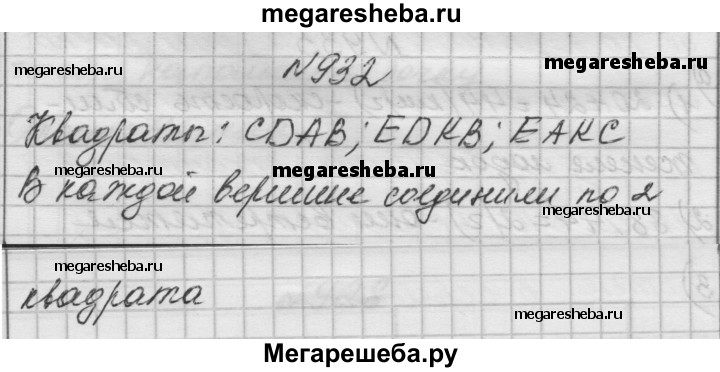 megaresheba.ru
№932
megaresheba.ru
megaresheba.ru
Квадраты: CDAB; EDKB; EAKC
megaresheba.ru
megaresheba.ru
В каждой вершине соединили по 2
megaresheba.ru
megaresheba.ru
квадрата
megaresheba.ru
Мегарешеба.ру